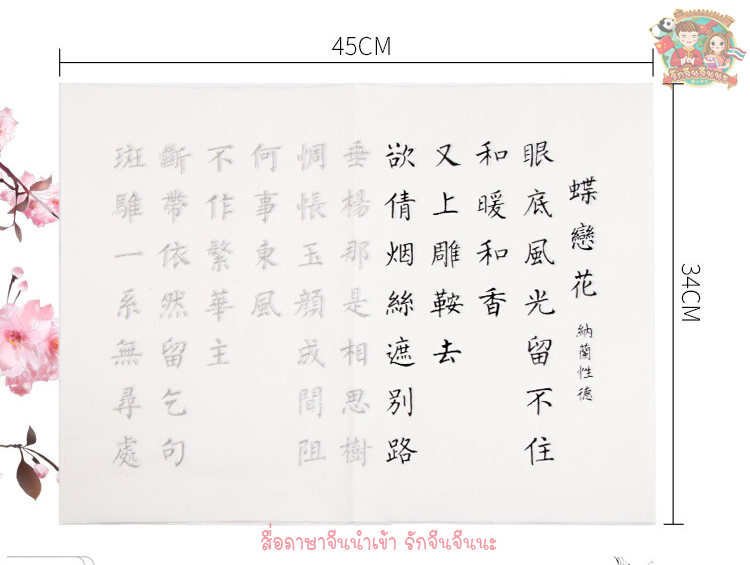 45CM
รักจีนจีนนะ
34CM
蝶戀花
納蘭性德
眼底風光留不住
和暖和香
又上雕鞍去
欲倩烟絲遮別路
垂楊那是相思樹
惆悵玉顔成間阻
何事東風
不作繁華主
斷帶依然留乞句
斑騅一系無尋處
สื่อภาษาจีนนำเข้า รักจีนจีนนะ